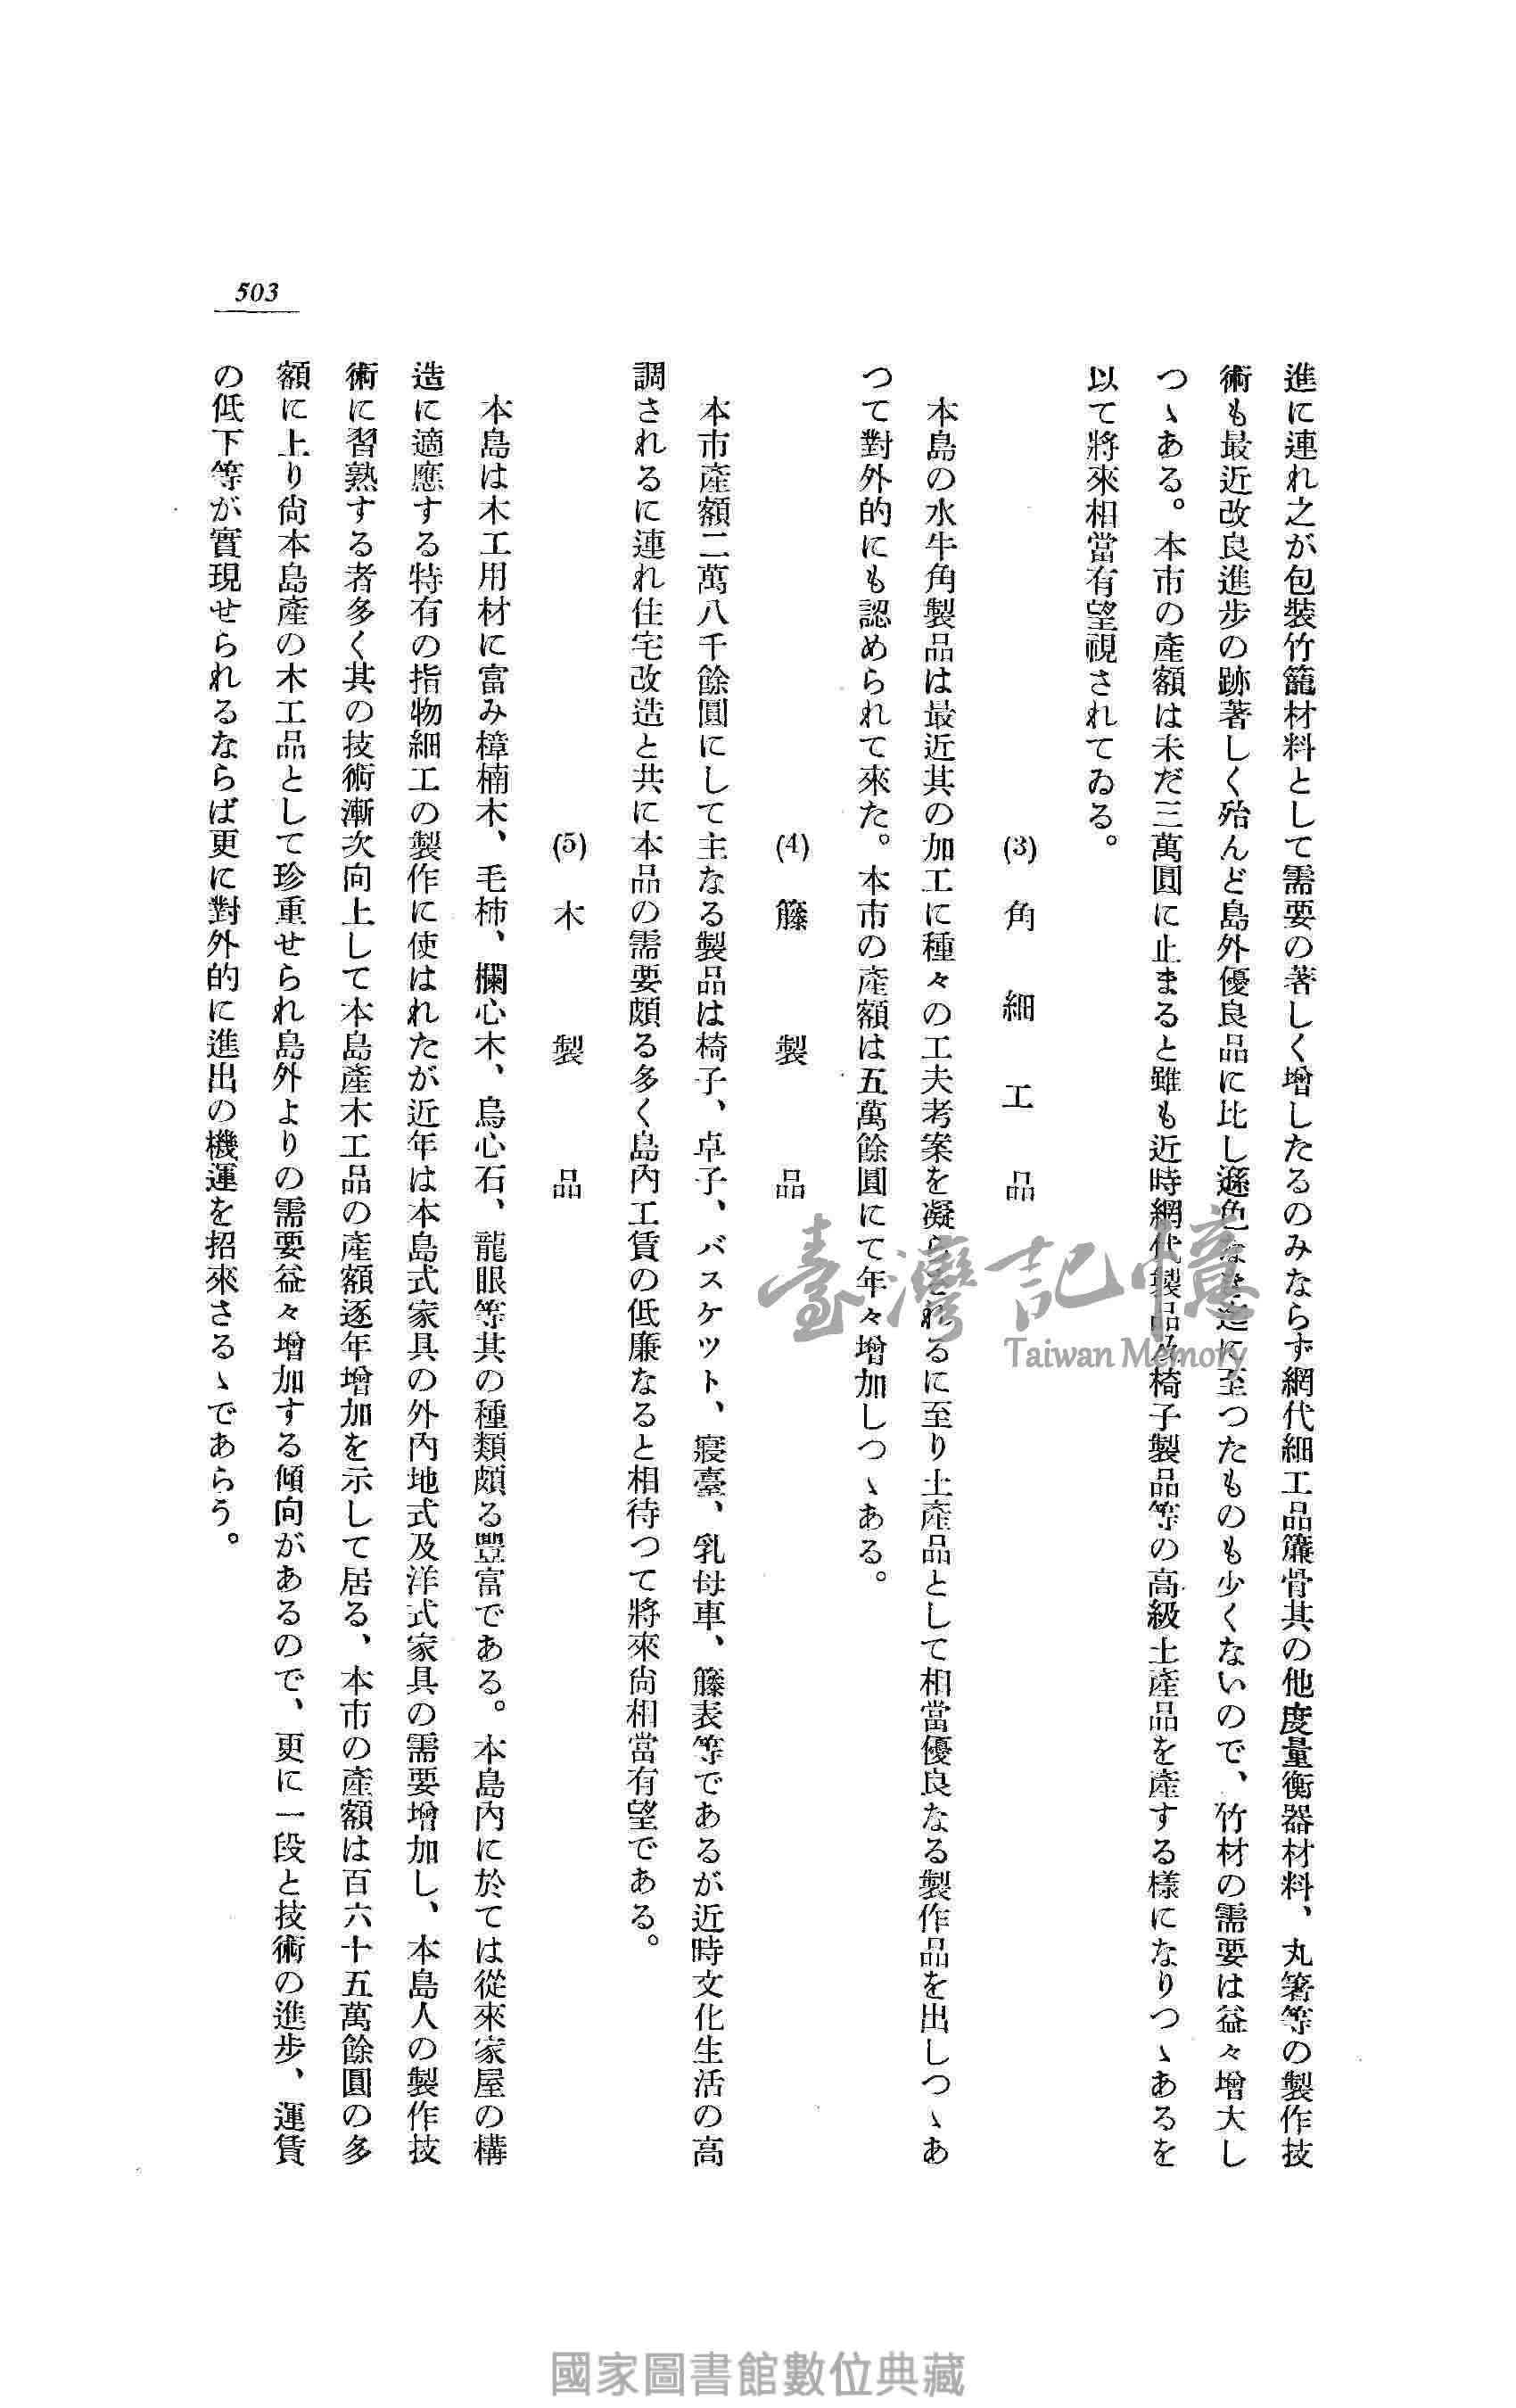 503
進に連れ之が包裝竹籠材料として需要の著しく增したるのみならず網代細工品簾骨其の他度量衡器材料、丸箸等の製作技
術も最近改良進步の跡著しく殆んど島外優良品に比し遜色なき迄に至つたものも少くないので、竹材の需要は益々增大し
つゝある。本市の產額は未だ三萬圓に止まると雖も近時網代製品及椅子製品等の高級土產品を產する樣になりつゝあるを
以て將來相當有望視されてゐる。
(3) 角細工品
本島の水牛角製品は最近其の加工に種々の工夫考案を凝らされるに至り土產品として相當優良なる製作品を出しつゝあ
つて對外的にも認められて來た。本市の產額は五萬餘圓にて年々增加しつゝある。
(4) 籐製品
本市產額二萬八千餘圓にして主なる製品は椅子、卓子、バスケツト、寢臺、乳母車、籐表等であるが近時文化生活の高
調されるに連れ住宅改造と共に本品の需要頗る多く島內工賃の低廉なると相待つて將來尙相當有望である。
(5) 木製品
本島は木工用材に富み樟楠木、毛柿、欄心木、烏心石、龍眼等其の種類頗る豐富である。本島內に於ては從來家屋の構
造に適應する特有の指物細工の製作に使はれたが近年は本島式家具の外內地式及洋式家具の需要增加し、本島人の製作技
術に習熟する者多く其の技術漸次向上して本島產木工品の產額逐年增加を示して居る、本市の產額は百六十五萬餘圓の多
額に上り尙本島產の木工品として珍重せられ島外よりの需要益々增加する傾向があるので、更に一段と技術の進步、運賃
の低下等が實現せられるならば更に對外的に進出の機運を招來さるゝであらう。
臺灣記憶
Taiwan Memory
國家圖書館數位典藏